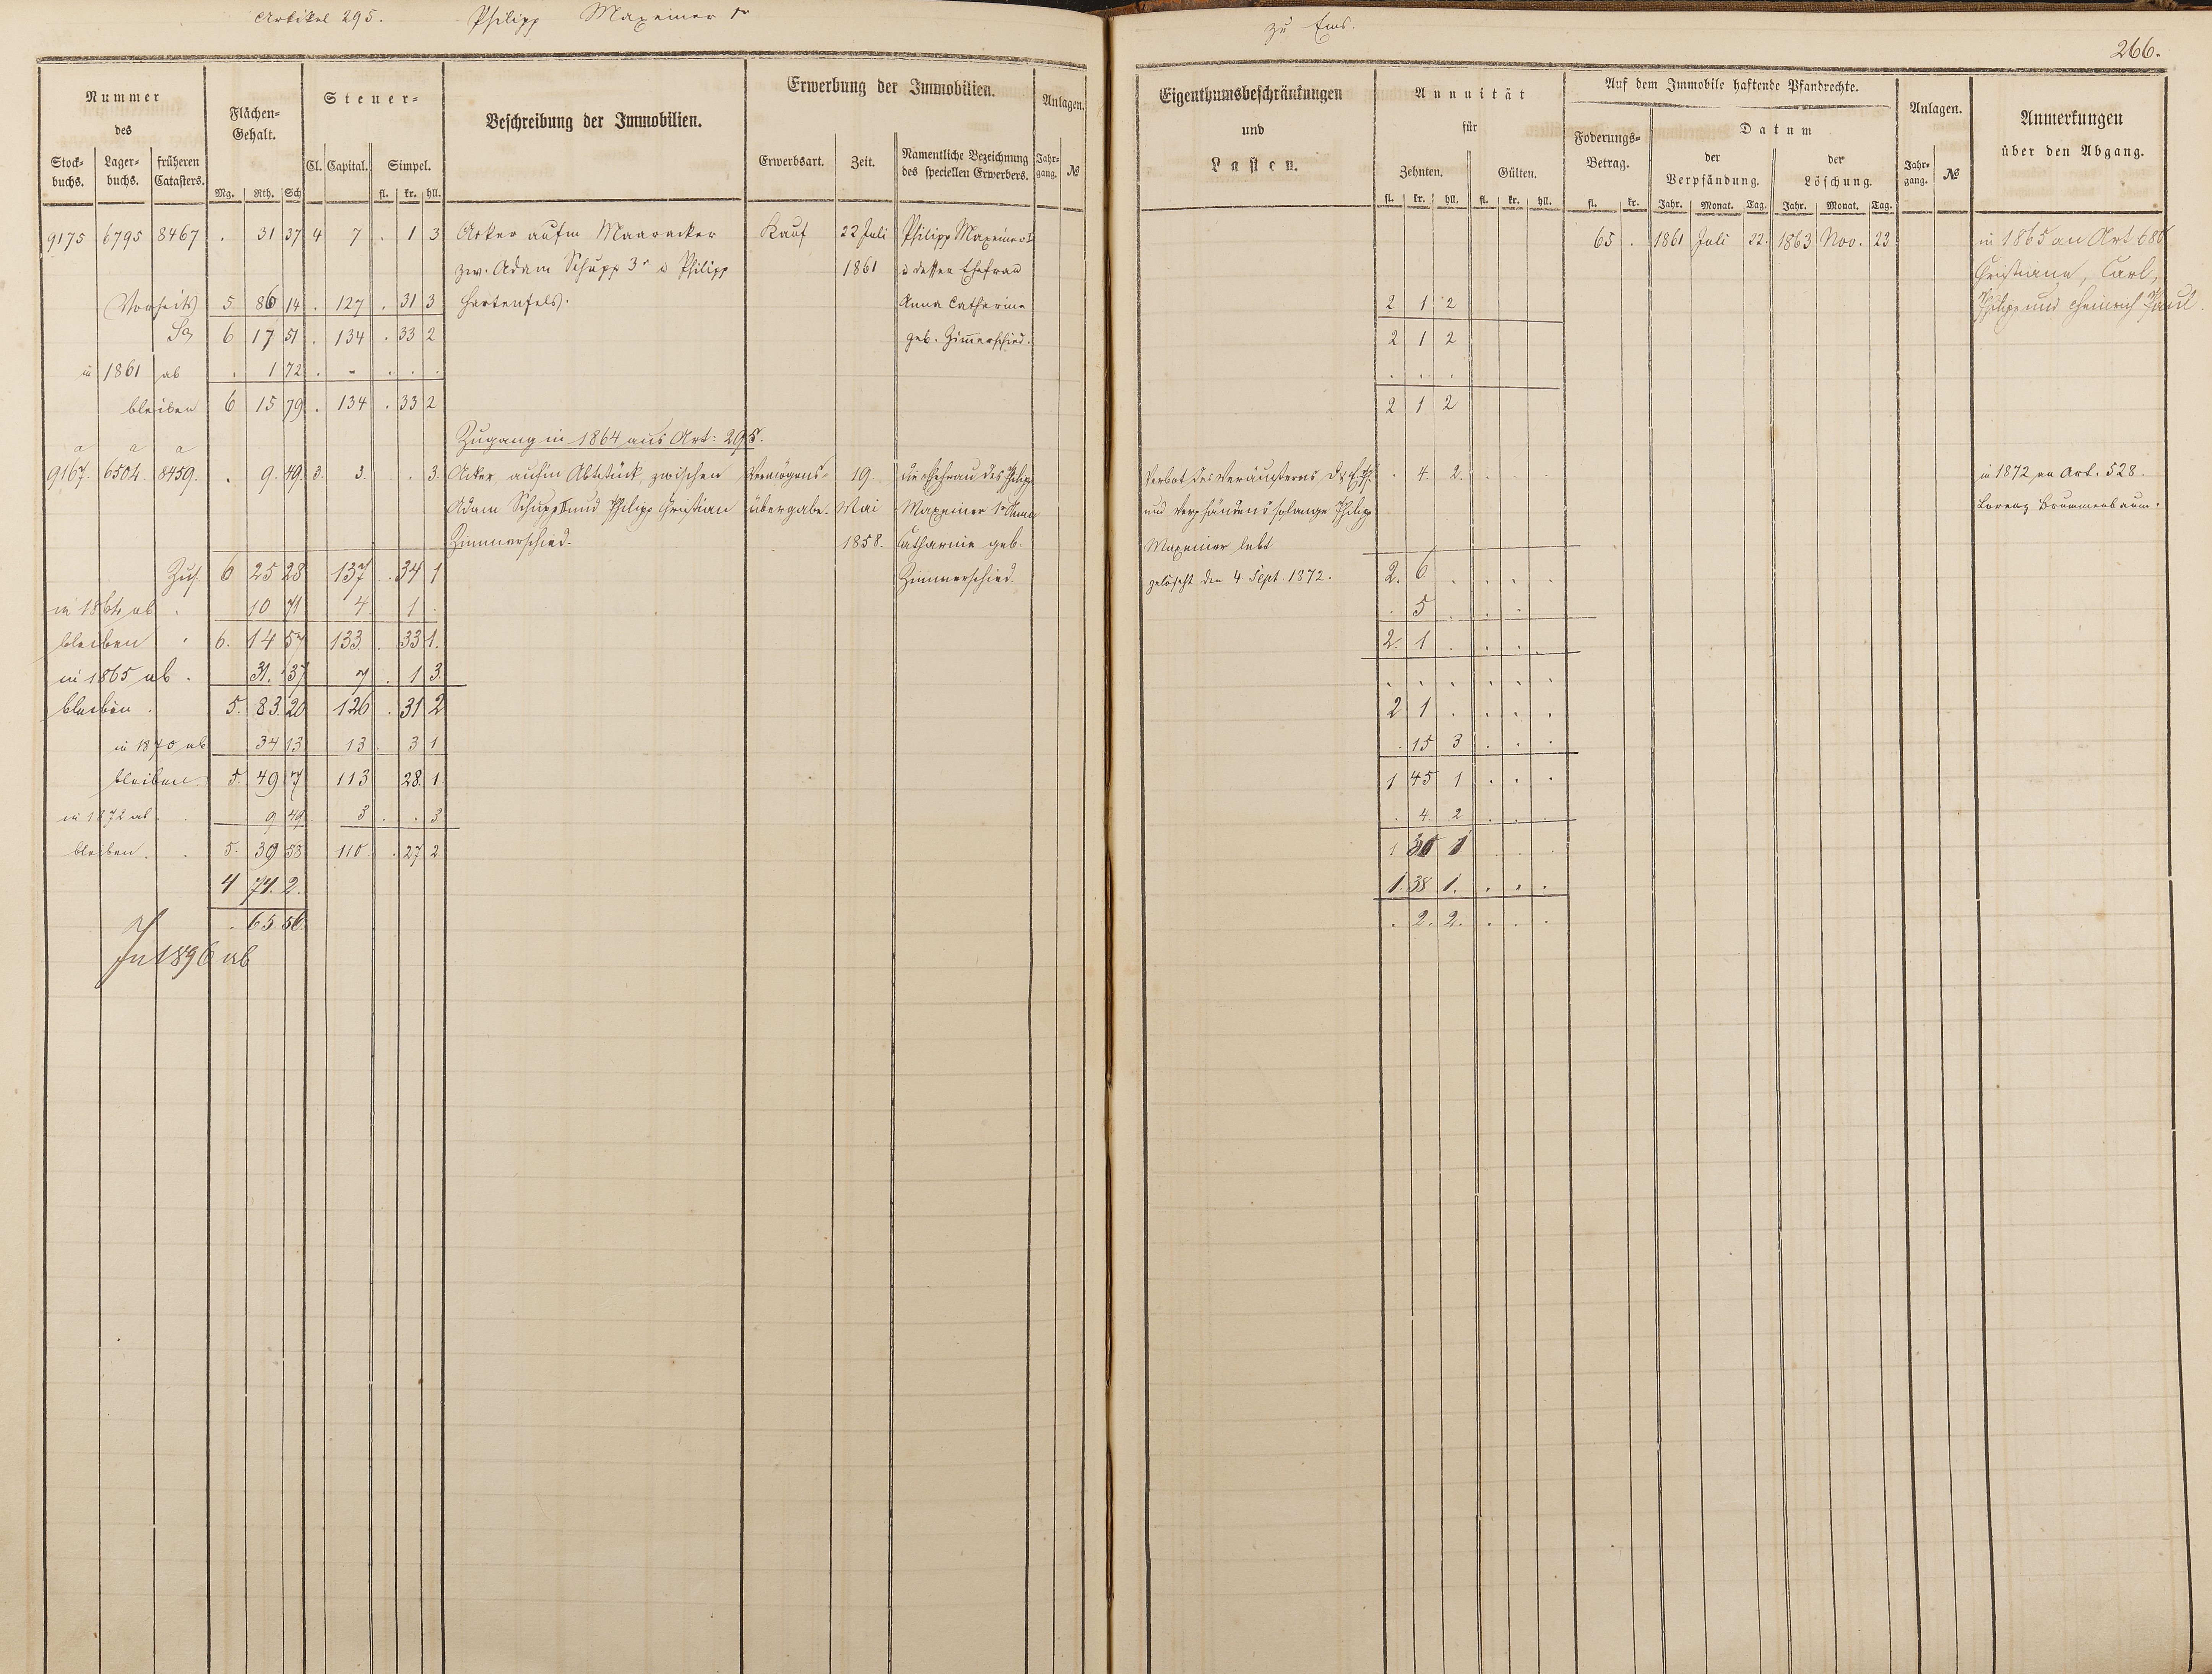 Artikel 295. Philipp Maxeiner 1r zu Ems.
266.
Nummer des
Stockbuchs. Lagerbuchs. früheren Catasters.
Flächen-Gehalt.
Mg. Rth. Sch
Steuer-
Cl. Capital. Simpel.
fl. kr. hll.
Beschreibung der Immobilien.
Erwerbung der Immobilien.
Erwerbsart. Zeit. Namentliche Bezeichnung des speciellen Erwerbers.
Anlagen.
Jahrgang. №
Eigenthumsbeschränkungen und Lasten.
Annuität für
Zehnten. Gülten.
fl. kr. hll. fl. kr. hll.
Auf dem Immobile haftende Pfandrechte.
Foderungs-Betrag.
fl. kr.
Datum
der Verpfändung. der Löschung.
Jahr. Monat. Tag. Jahr. Monat. Tag.
Anlagen.
Jahrgang. №
Anmerkungen über den Abgang.
9175 6795 8467 . 31 37 4 7 . 1 3 Acker aufm Maaracker Kauf 22 Juli Philipp Maxeiner 1r 65 . 1861 Juli 22. 1863 Nov. 23 in 1865 an Art 686
zw. Adam Schupp 3r & Philipp 1861 & dessen Ehefrau Christiane, Carl,
Vorseits 5 86 14 . 127 . 31 3 Hartenfels. Anna Catharine 2 1 2 Philipp und Heinrich Paul.
Sa 6 17 51 . 134 . 33 2 geb. Zimerschied. 2 1 2
in 1861 ab . 1 72 . - . . . . . .
bleiben 6 15 79 . 134 . 33 2 2 1 2
Zugang in 1864 aus Art: 295.
a a a
9167. 6504. 8459. . 9. 49. 3. 3. . . 3. Acker aufm Abtstück zwischen Vermögens- 19. die Ehefrau des Philipp Verbot des Veräußerns . 4. 2. in 1872 an Art. 528.
Adam Schupp und Philipp Christian übergabe. Mai Maxeiner 1r Anna und Verpfändens solange Philipp Lorenz Brummenbaum.
Zimmerschied. 1858. Catharine geb. Maxeiner lebt
Zus. 6 25 28 137 . 34 1 Zimmerschied. gelöscht den 4 Sept. 1872. 2. 6 . . . .
in 1864 ab . 10 71 4 1 . . 5 . . .
bleiben . 6. 14 57 133 . 33 1. 2. 1 . . . .
in 1865 ab . 31. 37 7 . 1 3. . . . . . .
bleiben . 5. 83. 20 126 . 31 2 2 1 . . . .
in 1870 ab 34 13 13 . 3 1 . 15 3 . . .
bleiben. 5. 49 7 113 28. 1 1 45 1 . . .
in 1872 ab . 9 49 3 . . 3 . 4. 2 . . .
bleiben. . 5. 39 58 110 . 27 2 1
4 74. 2. 1. 38 1. . . .
. 65 56. . 2. 2. . . .
In 1896 ab